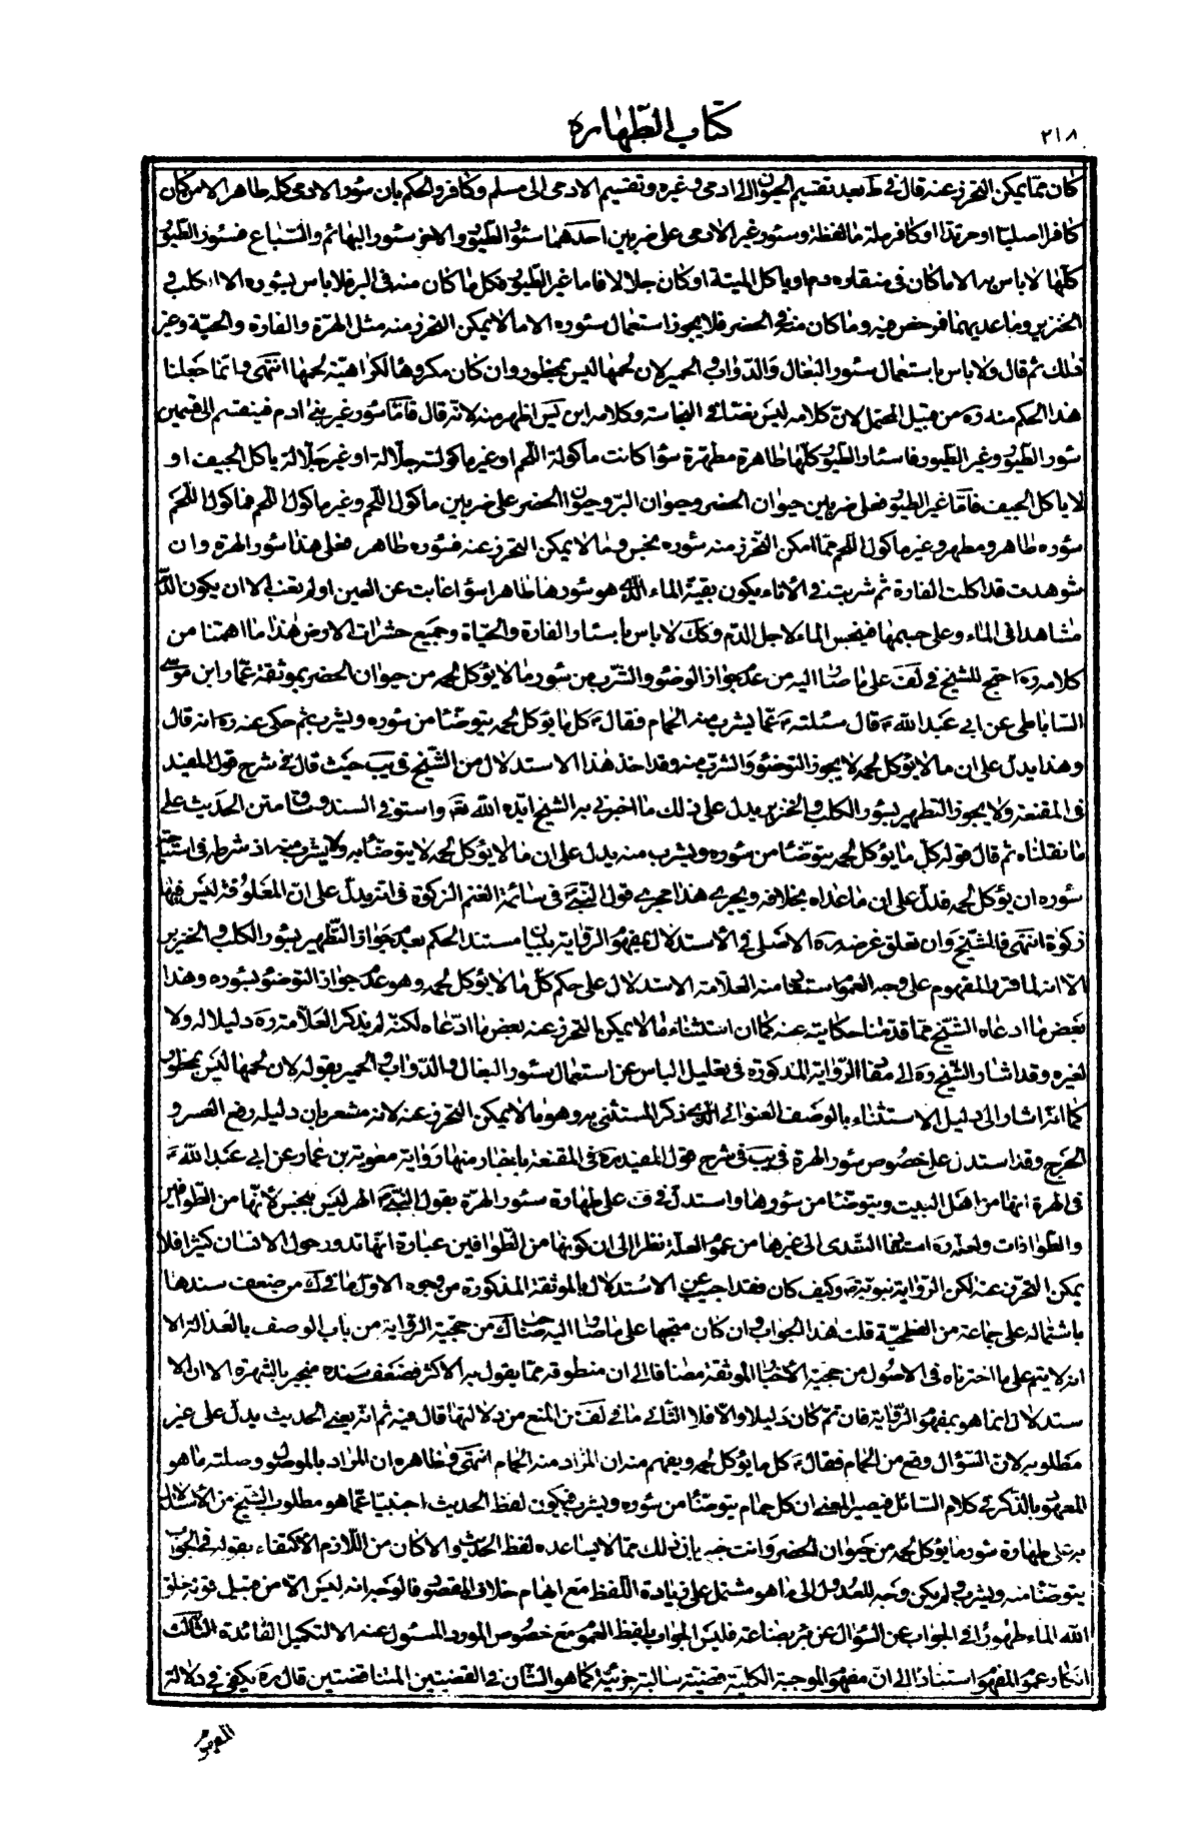 ٢١٨
كتاب الطهارة
كان مما يمكن التحرز عنه قال في ط بعد تقسيم الحيوان الى ادمي و غيره و تقسيم الادمي الى مسلم و كافر و الحكم بان سؤر الادمي كله طاهر الا من كان
كافرا اصليا او مرتدا او كافر ملة ما لفظه و سئور غير الادمي على ضربين احدهما سئور الطيور و الاخر سئور البهائم و السباع فسئور الطيور
كلها لا باس به الا ما كان في منقاره دم او ياكل الميتة او كان جلالا فاما غير الطيور فكل ما كان منه في البر فلا باس بسئوره الا الكلب و
الخنزير و ما عديهما فرخص فيه و ما كان منه في الحضر فلا يجوز استعمال سئوره الا ما لا يمكن التحرز منه مثل الهرة و الفارة و الحية و غير
ذلك ثم قال و لا باس باستعمال سئور البغال و الدواب و الحمير لان لحمها ليس بمحظور و ان كان مكروها لكراهية لحمها انتهى و انما جعلنا
هذا الحكم منه ره من قبيل المحتمل لان كلامه ليس نصا في النجاسة و كلام ابن يس اظهر منه لانه قال فاما سئور غير بني ادم فينقسم الى قسمين
سئور الطيور و غير الطيور فاسئار الطيور كلها طاهرة مطهرة سؤا كانت ماكولة اللحم او غير ماكولته جلالة او غير جلالة ياكل الجيف او
لا ياكل الجيف فاما غير الطيور فعلى ضربين حيوان الحضر و حيوان البر و حيوان الحضر على ضربين ماكول اللحم و غير ماكول اللحم فماكول اللحم
سؤره طاهر و مطهر و غير ماكول اللحم مما امكن التحرز منه سئوره نجس و ما لا يمكن التحرز عنه فسئوره طاهر فعلى هذا سئور الهرة و ان
شوهدت قد اكلت الفارة ثم شربت في الاناء يكون بقية الماء الذي هو سئورها طاهرا سؤا غابت عن العين او لم تغب الا ان يكون الدم
مشاهدا في الماء و على جسمها فينجس الماء لاجل الدم و كك لا باس باسئار الفارة و الحياة و جميع حشرات الارض هذا ما اهمنا من
كلامه ره احتج للشيخ في لف على ما صار اليه من عدم جواز الوضوء و الشرب من سئور ما لا يؤكل لحمه من حيوان الحضر بموثقة عمار ابن موسى
الساباطي عن ابي عبد الله ع قال سئلته ع عما يشرب منه الحمام فقال ع كل ما يؤكل لحمه يتوضا من سئوره و يشرب ثم حكى عنه ره انه قال
و هذا يدل على ان ما لا يؤكل لحمه لا يجوز التوضؤ و الشرب منه و قد اخذ هذا الاستدلال من الشيخ في يب حيث قال في شرح قول المفيد
في المقنعة و لا يجوز التطهير بسئور الكلب و الخنزير يدل على ذلك ما اخبرني به الشيخ ايده الله تعالى و استوفى السند و ساق متن الحديث على
ما نقلناه ثم قال قوله كل ما يؤكل لحمه يتوضا من سئوره و يشرب منه يدل على ان ما لا يؤكل لحمه لا يتوضا به و لا يشرب منه اذ شرط في استباحة
سئوره ان يؤكل لحمه فدل على ان ما عداه بخلافه و يجري هذا مجرى قول النبي ص في سائمة الغنم الزكوة في انه يدل على ان المعلوفة ليس فيها
زكوة انتهى فالشيخ و ان تعلق غرضه ره الاصلي في الاستدلال بمفهوم الرواية ببيان مستند الحكم بعدم جواز التطهير بسئور الكلب و الخنزير
الا انه لما قرر المفهوم على وجه العموم استفا منه العلامة الاستدلال على حكم كل ما لا يؤكل لحمه و هو عدم جواز التوضؤ بسئوره و هذا
بعض ما ادعاه الشيخ مما قدمنا حكايته عنه كما ان استثناء ما لا يمكن التحرز عنه بعض ما ادعاه لكنه لم يذكر العلامة ره دليلا له و لا
لغيره و قد اشار الشيخ ره الى مفاد الرواية المذكورة في تعليل الباس عن استعمال سئور البغال و الدواب و الحمير بقوله لان لحمها ليس بمحظور
كما انه اشار الى دليل الاستثناء بالوصف العنواني الذي ذكر المستثنى به و هو ما لا يمكن التحرز عنه لانه مشعر بان دليله رفع العسر و
الحرج و قد استدل على خصوص سئور الهرة في يب في شرح قول المفيد ره في المقنعة باخبار منها رواية معوية بن عمار عن ابي عبد الله ع
في الهرة انها من اهل البيت و يتوضا من سئورها و استدل في ف على طهارة سئور الهرة بقول النبي ص الهر ليس بنجس لانها من الطوافين
و الطوافات و لعله ره استفا التعدى الى غيرها من عموم العلة نظرا الى ان كونها من الطوافين عبارة انها تدور حول الانسان كثيرا فلا
يمكن التحرز عنه لكن الرواية نبوية و كيف كان فقد اجيب عن الاستدلال بالموثقة المذكورة من وجوه الاول ما في ك من ضعف سندها
باشتماله على جماعة من الفطحية قلت هذا الجواب و ان كان متجها على ما صار اليه صاحب ك من حجية الرواية من باب الوصف بالعدالة الا
انه لا يتم على ما اخترناه في الاصول من حجية الاخبار الموثقة مضافا الى ان منطوقه مما يقول به الاكثر فضعف سنده منجبر بالشهرة الا ان الا
ستدلال انما هو بمفهوم الرواية فان تم كان دليلا و الا فلا الثاني ما في لف من المنع من دلالتها قال فيه ثم انه يعني الحديث يدل على غير
مطلوبه لان السؤال وقع من الحمام فقال ع كل ما يؤكل لحمه و يفهم منه ان المراد منه الحمام انتهى و ظاهره ان المراد بالموصول و صلته ما هو
المعهود بالذكر في كلام السائل فيصير المعنى ان كل حمام يتوضا من سئوره و يشرب فيكون لفظ الحديث اجنبيا عما هو مطلوب الشيخ من الاستدلال
به على طهارة سئور ما يؤكل لحمه من حيوان الحضر و انت خبير بان ذلك مما لا يساعده لفظ الحديث و الا كان من اللازم الاكتفاء بقوله في الجواب
يتوضا منه و يشرب و لم يكن وجه للعدول الى ما هو مشتمل على زيادة اللفظ مع ايهام خلاف المقصود فالوجه انه ليس الا من قبيل قوله خلق
الله الماء طهورا في الجواب عن السؤال عن بئر بضاعة فليس الجواب بلفظ العموم مع خصوص المورد المسئول عنه الا لتكميل الفائدة الثالث
انكار عموم المفهوم استنادا الى ان مفهوم الموجبة الكلية قضية سالبة جزئية كما هو الشان في القضيتين المتناقضتين قال ره يكفي في دلالة
المفهوم